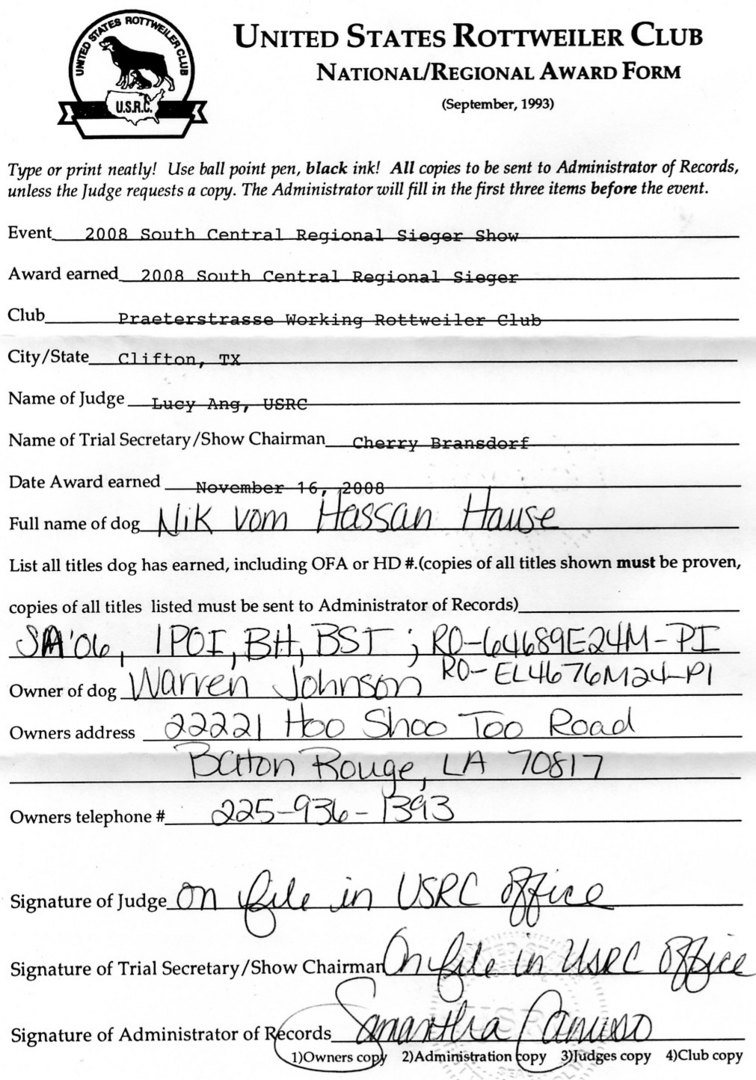 UNITED STATES ROTTWEILER CLUB
U.S.R.C.
UNITED STATES ROTTWEILER CLUB
NATIONAL/REGIONAL AWARD FORM
(September, 1993)
Type or print neatly! Use ball point pen, black ink! All copies to be sent to Administrator of Records,
unless the Judge requests a copy. The Administrator will fill in the first three items before the event.
Event 2008 South Central Regional Sieger Show
Award earned 2008 South Central Regional Sieger
Club Praeterstrasse Working Rottweiler Club
City/State Clifton, TX
Name of Judge Lucy Ang, USRC
Name of Trial Secretary/Show Chairman Cherry Bransdorf
Date Award earned November 16, 2008
Full name of dog Nik vom Hassan Hause
List all titles dog has earned, including OFA or HD #.(copies of all titles shown must be proven,
copies of all titles listed must be sent to Administrator of Records)
SA'06, IPOI, BH, BST ; RO-64689E24M-PI
RO-EL4676M24-PI
Owner of dog Warren Johnson
Owners address 22221 Hoo Shoo Too Road
Baton Rouge, LA 70817
Owners telephone # 225-936-1393
Signature of Judge on file in USRC office
Signature of Trial Secretary/Show Chairman On file in USRC office
Signature of Administrator of Records Samantha Canuso
1)Owners copy 2)Administration copy 3)Judges copy 4)Club copy